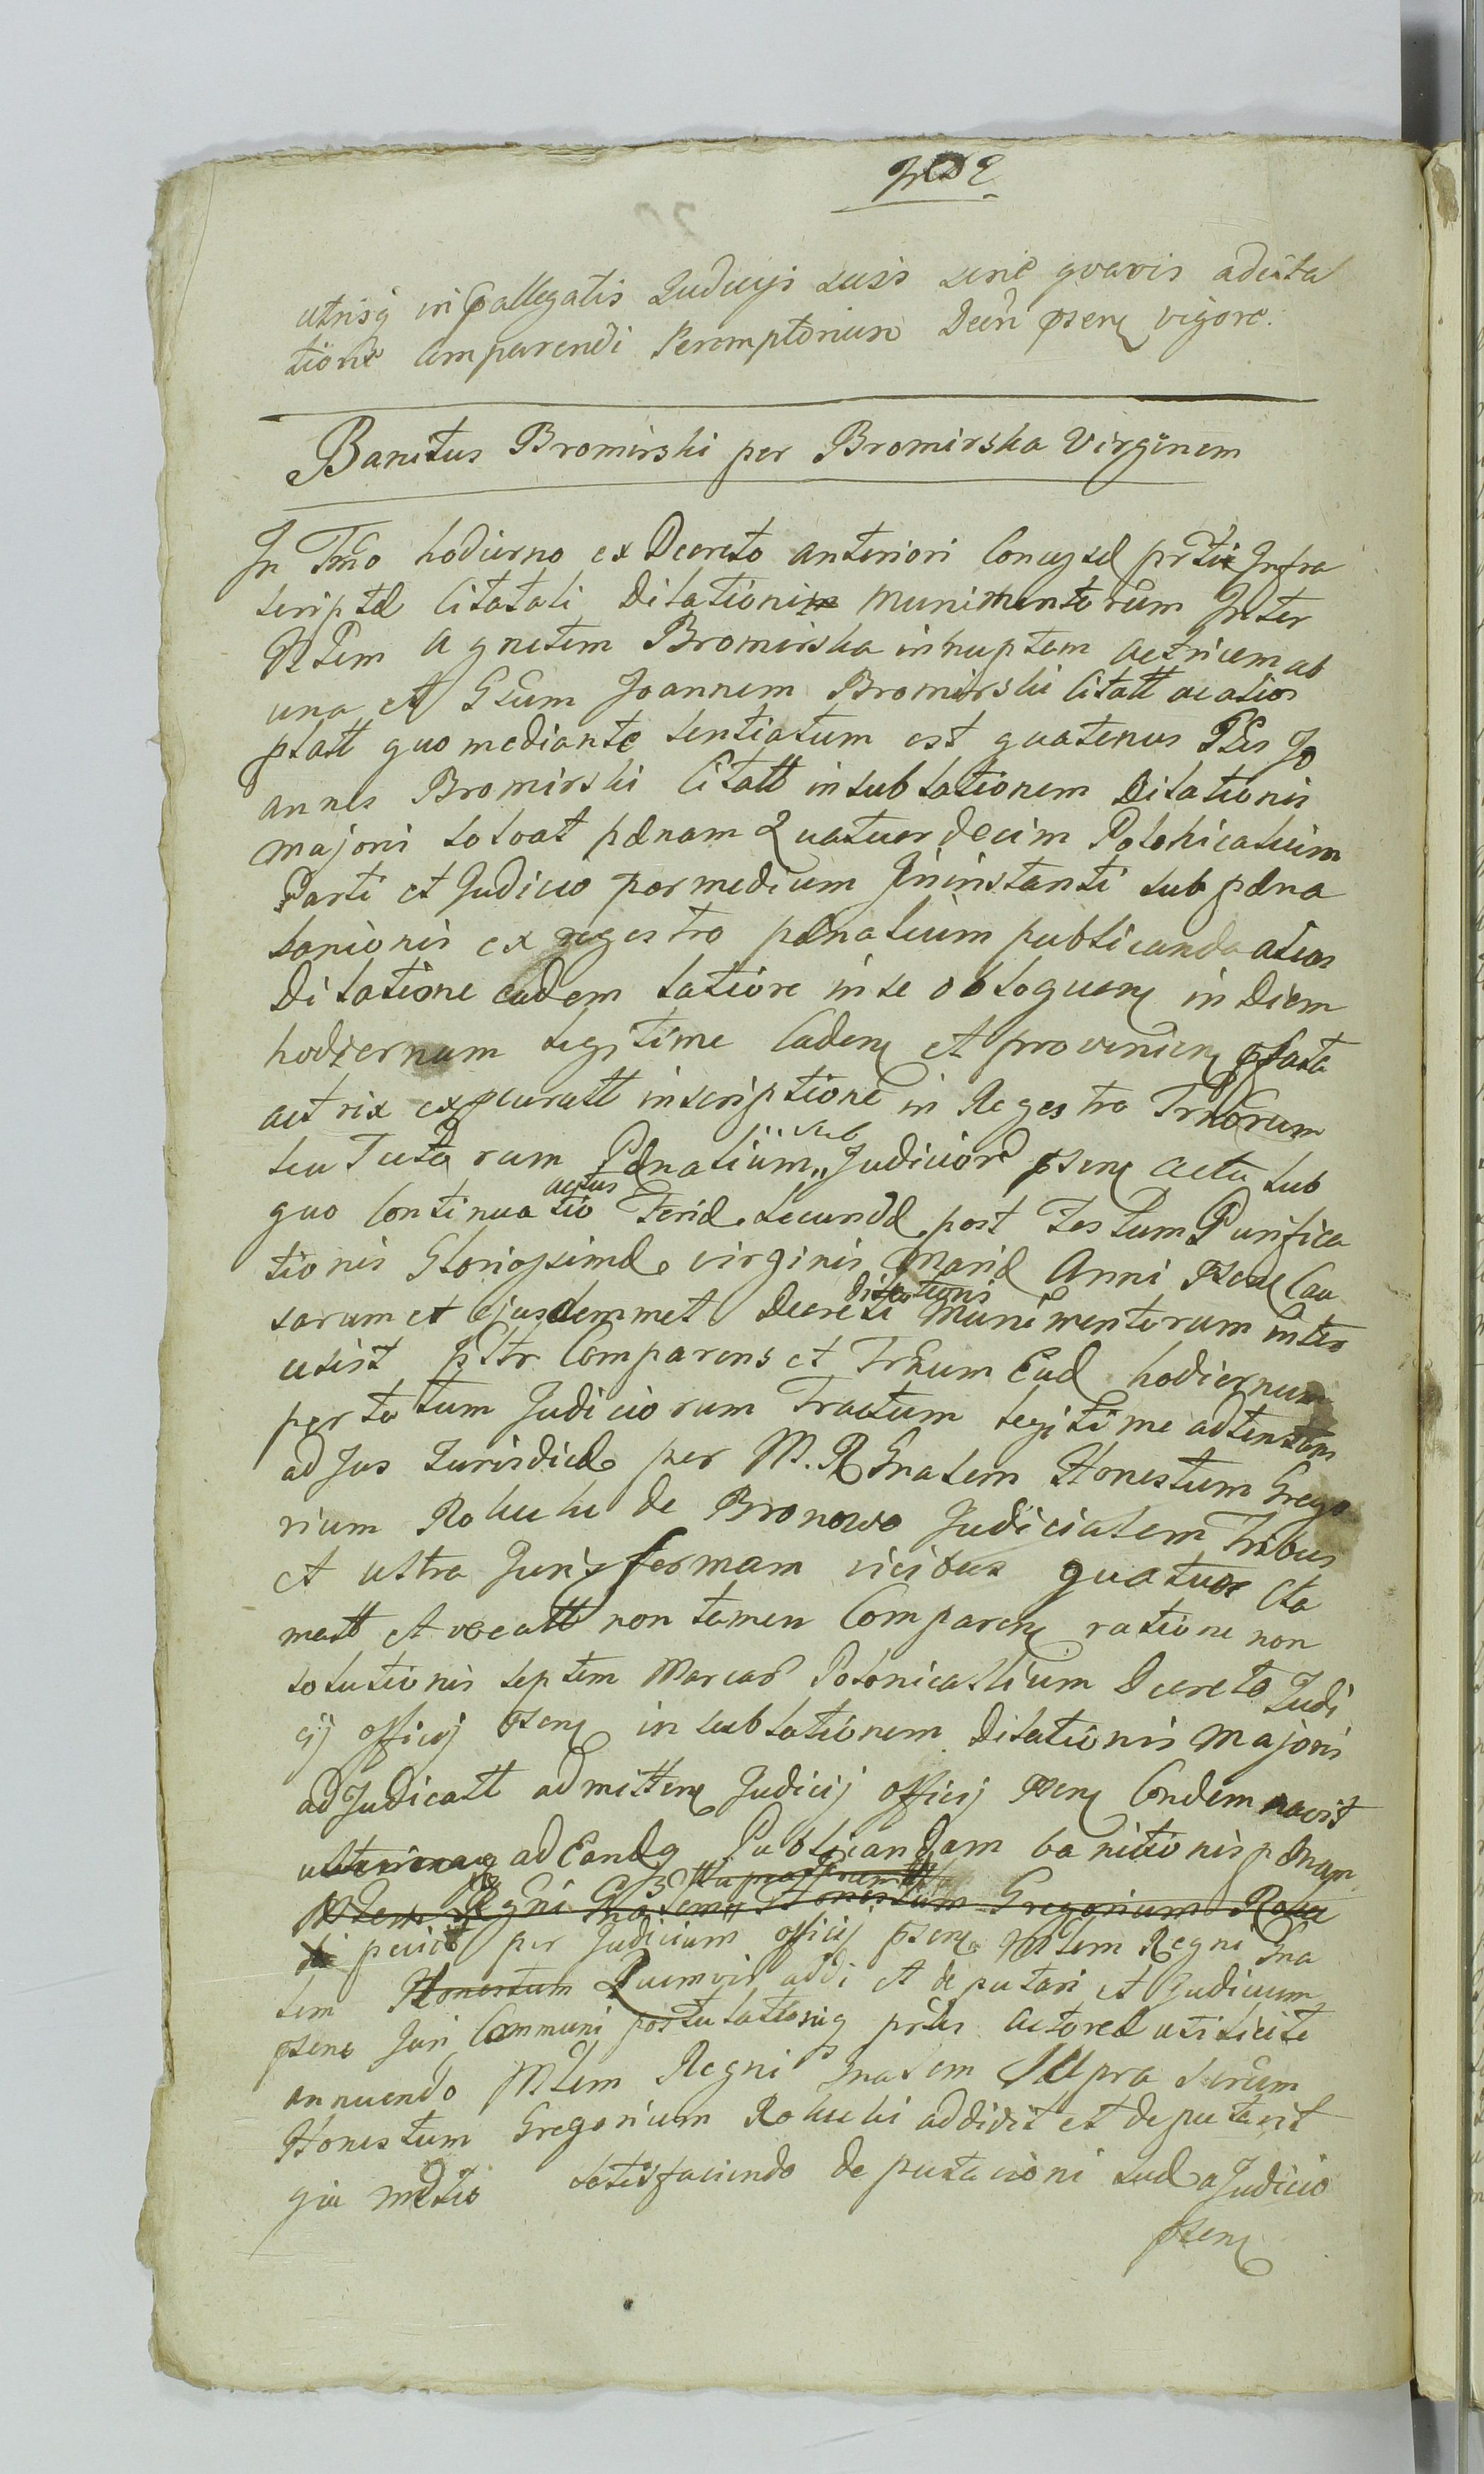 utrisq in pallegatis Judicijs suis sine quavis adcita
tione Comparendi Peremptorium Decri psenq vigore.
Banitus Bromirski per Bromirska Virginem
In Tmo hodierno ex Decreto anteriori Concessæ prti Infra
scriptæ Citatali Dilationis Munimentorum Inter
Agnetem Bromirska innuptam actricem ab
una et Gsum Joannem Bromirski Citatt ac alios
ptatt quo mediante sentiatum est quatenus Jo
annes Bromirski Citatt in sublationem Dilationis
majoris solvat pænam Quatuordecim Polonicalium
Parti et Judicio per medium In instanti sub pæna
banionis ex regestro pænalium publicanda alias
Dilatione eadem latiore in se obloquenq in Diem
hodiernum legitime Cadenq et provenienq pfata
actrix ex pcuratt inscriptione in Regestro Trnorum
seu Tactorum Pænalium,, Judicior psenq actu sub
sub
quo Continuatio Feriæ Secundæ post Festum Purifica
actus
tionis Gloriossimæ virginis Mariæ Anni psenq Cau
sarum et Ejusdemmet Decreti Munimentorum inter
Dilationis
Comparens et Trnum Eund hodiernum
per totum Judiciorum Tractum legitime adtentans
ad Jus Jurisdicæ per M. R Gnalem Honestum Grego
rium Rokuki de Bronowo Judicialem Tribus
et ultra Juris formam vicibus quatuor Cla
matt et vocatt non tamen Comparenq ratione non
solutionis septem Marcar Polonicallium Decreto Judi
cij officij psenq in sublationem Dilationis Majoris
adjudicatt admittenq Judicij officij psenq Condemnavit
ad Eandq Publicandam banitionis pænam
Regni Gnalem Honestum Gregorium Roku
ki peciit per Judicium officij psenq Mtlem Regni Gna
lem Honestum Quemvis addi et deputari et Judicium
psenq Juri Communi postulationiq prtis Actoreæ uti licite
annuendo Mtlem Regni Gnalem Supra scrum
Honestum Gregorium Rokuki addidit et deputavit
qui satisfaciendo deputacioni suæ a Judicio
psenq